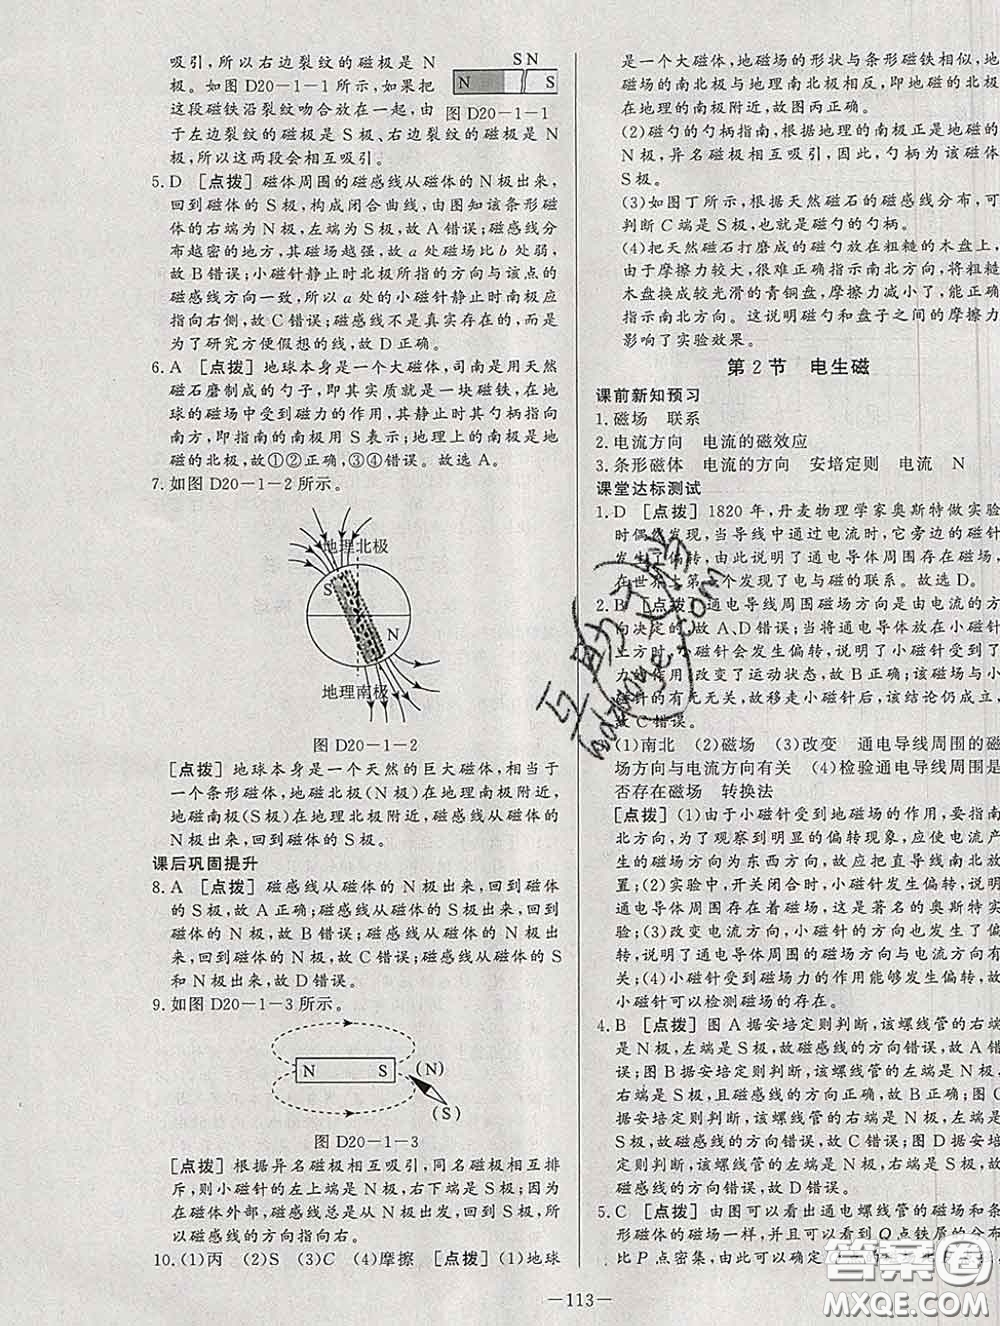 吸引，所以右边裂纹的磁极是 N
极。如图 D20－1－1 所示，如果把
这段磁铁沿裂纹吻合放在一起，由
于左边裂纹的磁极是 S 极、右边裂纹的磁极是 N
极，所以这两段会相互吸引。
S N
N S
图 D20－1－1
5. D ［点拨］ 磁体周围的磁感线从磁体的 N 极出来，
回到磁体的 S 极，构成闭合曲线，由图知该条形磁
体的右端为 N 极，左端为 S 极，故 A 错误；磁感线分
布越密的地方，其磁场越强，故 a 处磁场比 b 处弱，
故 B 错误；小磁针静止时北极所指的方向与该点的
磁感线方向一致，所以 a 处的小磁针静止时南极应
指向右侧，故 C 错误；磁感线不是真实存在的，而是
为了研究方便假想的线，故 D 正确。
6. A ［点拨］ 地球本身是一个大磁体，司南是用天然
磁石磨制成的勺子，即其实质就是一块磁铁，在地
球的磁场中受到磁力的作用，其静止时勺柄指向
南方，即指南的南极用 S 表示；地理上的南极是地
磁的北极，故①②正确，③④错误。故选 A。
7. 如图 D20－1－2 所示。
地理北极
S
N
地理南极
图 D20－1－2
［点拨］ 地球本身是一个天然的巨大磁体，相当于
一个条形磁体，地磁北极(N 极)在地理南极附近，
地磁南极(S 极)在地理北极附近，磁感线从磁体的
N 极出来，回到磁体的 S 极。
课后巩固提升
8. A ［点拨］ 磁感线从磁体的 N 极出来，回到磁体
的 S 极，故 A 正确；磁感线从磁体的 S 极出来，回到
磁体的 N 极，故 B 错误；磁感线从磁体的 N 极出
来，回到磁体的 N 极，故 C 错误；磁感线从磁体的 S
和 N 极出来，故 D 错误。
9. 如图 D20－1－3 所示。
N S (N)
(S)
图 D20－1－3
［点拨］ 根据异名磁极相互吸引，同名磁极相互排
斥，则小磁针的左上端是 N 极，右下端是 S 极；因为
在磁体外部，磁感线总是从 N 极出发，回到 S 极，所
以磁感线的方向指向右。
10. (1)丙 (2)S (3)C (4)摩擦 ［点拨］ (1)地球
是一个大磁体，地磁场的形状与条形磁铁相似，地
磁场的南北极与地理南北极相反，即地磁的北极
在地理的南极附近，故图丙正确。
(2)磁勺的勺柄指南，根据地理的南极正是地磁的
N 极，异名磁极相互吸引，因此，勺柄为该磁体的
S 极。
(3)如图丁所示，根据天然磁石的磁感线分布，可
判断 C 端是 S 极，也就是磁勺的勺柄。
(4)把天然磁石打磨成的磁勺放在粗糙的木盘上，
由于摩擦力较大，很难正确指示南北方向，将粗糙
木盘换成较光滑的青铜盘，摩擦力减小了，能正确
指示南北方向。这说明磁勺和盘子之间的摩擦力
影响了实验效果。
第 2 节 电生磁
课前新知预习
1. 磁场 联系
2. 电流方向 电流的磁效应
3. 条形磁体 电流的方向 安培定则 电流 N
课堂达标测试
1. D ［点拨］ 1820 年，丹麦物理学家奥斯特做实验
时偶然发现，当导线中通过电流时，它旁边的磁针
发生了偏转，由此说明了通电导体周围存在磁场，
在世界上第一个发现了电与磁的联系。故选 D。
2. B ［点拨］ 通电导线周围磁场方向是由电流的方
向决定的，故 A、D 错误；当将通电导体放在小磁针
上方时，小磁针会发生偏转，说明了小磁针受到了
力的作用，改变了运动状态，故 B 正确；该磁场与小
磁针的有无无关，故移走小磁针后，该结论仍成立，
故 C 错误。
(1)南北 (2)磁场 (3)改变 通电导线周围的磁
场方向与电流方向有关 (4)检验通电导线周围是
否存在磁场 转换法
［点拨］ (1)由于小磁针受到地磁场的作用，要指南
北方向，为了观察到明显的偏转现象，应使电流产
生的磁场方向为东西方向，故应把直导线南北放
置；(2)实验中，开关闭合时，小磁针发生偏转，说明
通电导体周围存在着磁场，这是著名的奥斯特实
验；(3)改变电流方向，小磁针的方向也发生了偏
转，说明了通电导体周围的磁场方向与电流方向有
关；(4)小磁针受到磁场力的作用能够发生偏转，故
小磁针可以检测磁场的存在。
4. B ［点拨］ 图 A 据安培定则判断，该螺线管的右端
是 N 极，左端是 S 极，故磁感线的方向错误，故 A 错
误；图 B 据安培定则判断，该螺线管的左端是 N 极，
右端是 S 极，故磁感线的方向正确，故 B 正确；图 C
据安培定则判断，该螺线管的右端是 N 极，左端是
S 极，故磁感线的方向错误，故 C 错误；图 D 据安培
定则判断，该螺线管的左端是 N 极，右端是 S 极，故
磁感线的方向错误，故 D 错误。
5. C ［点拨］ 由图可以看出通电螺线管的磁场和条
形磁体的磁场相似，并且可以看到 Q 点铁屑的分布
比 P 点密集，由此可以确定
－113－
互助文档
hdzuoye.com
答案圈
MXQE.COM